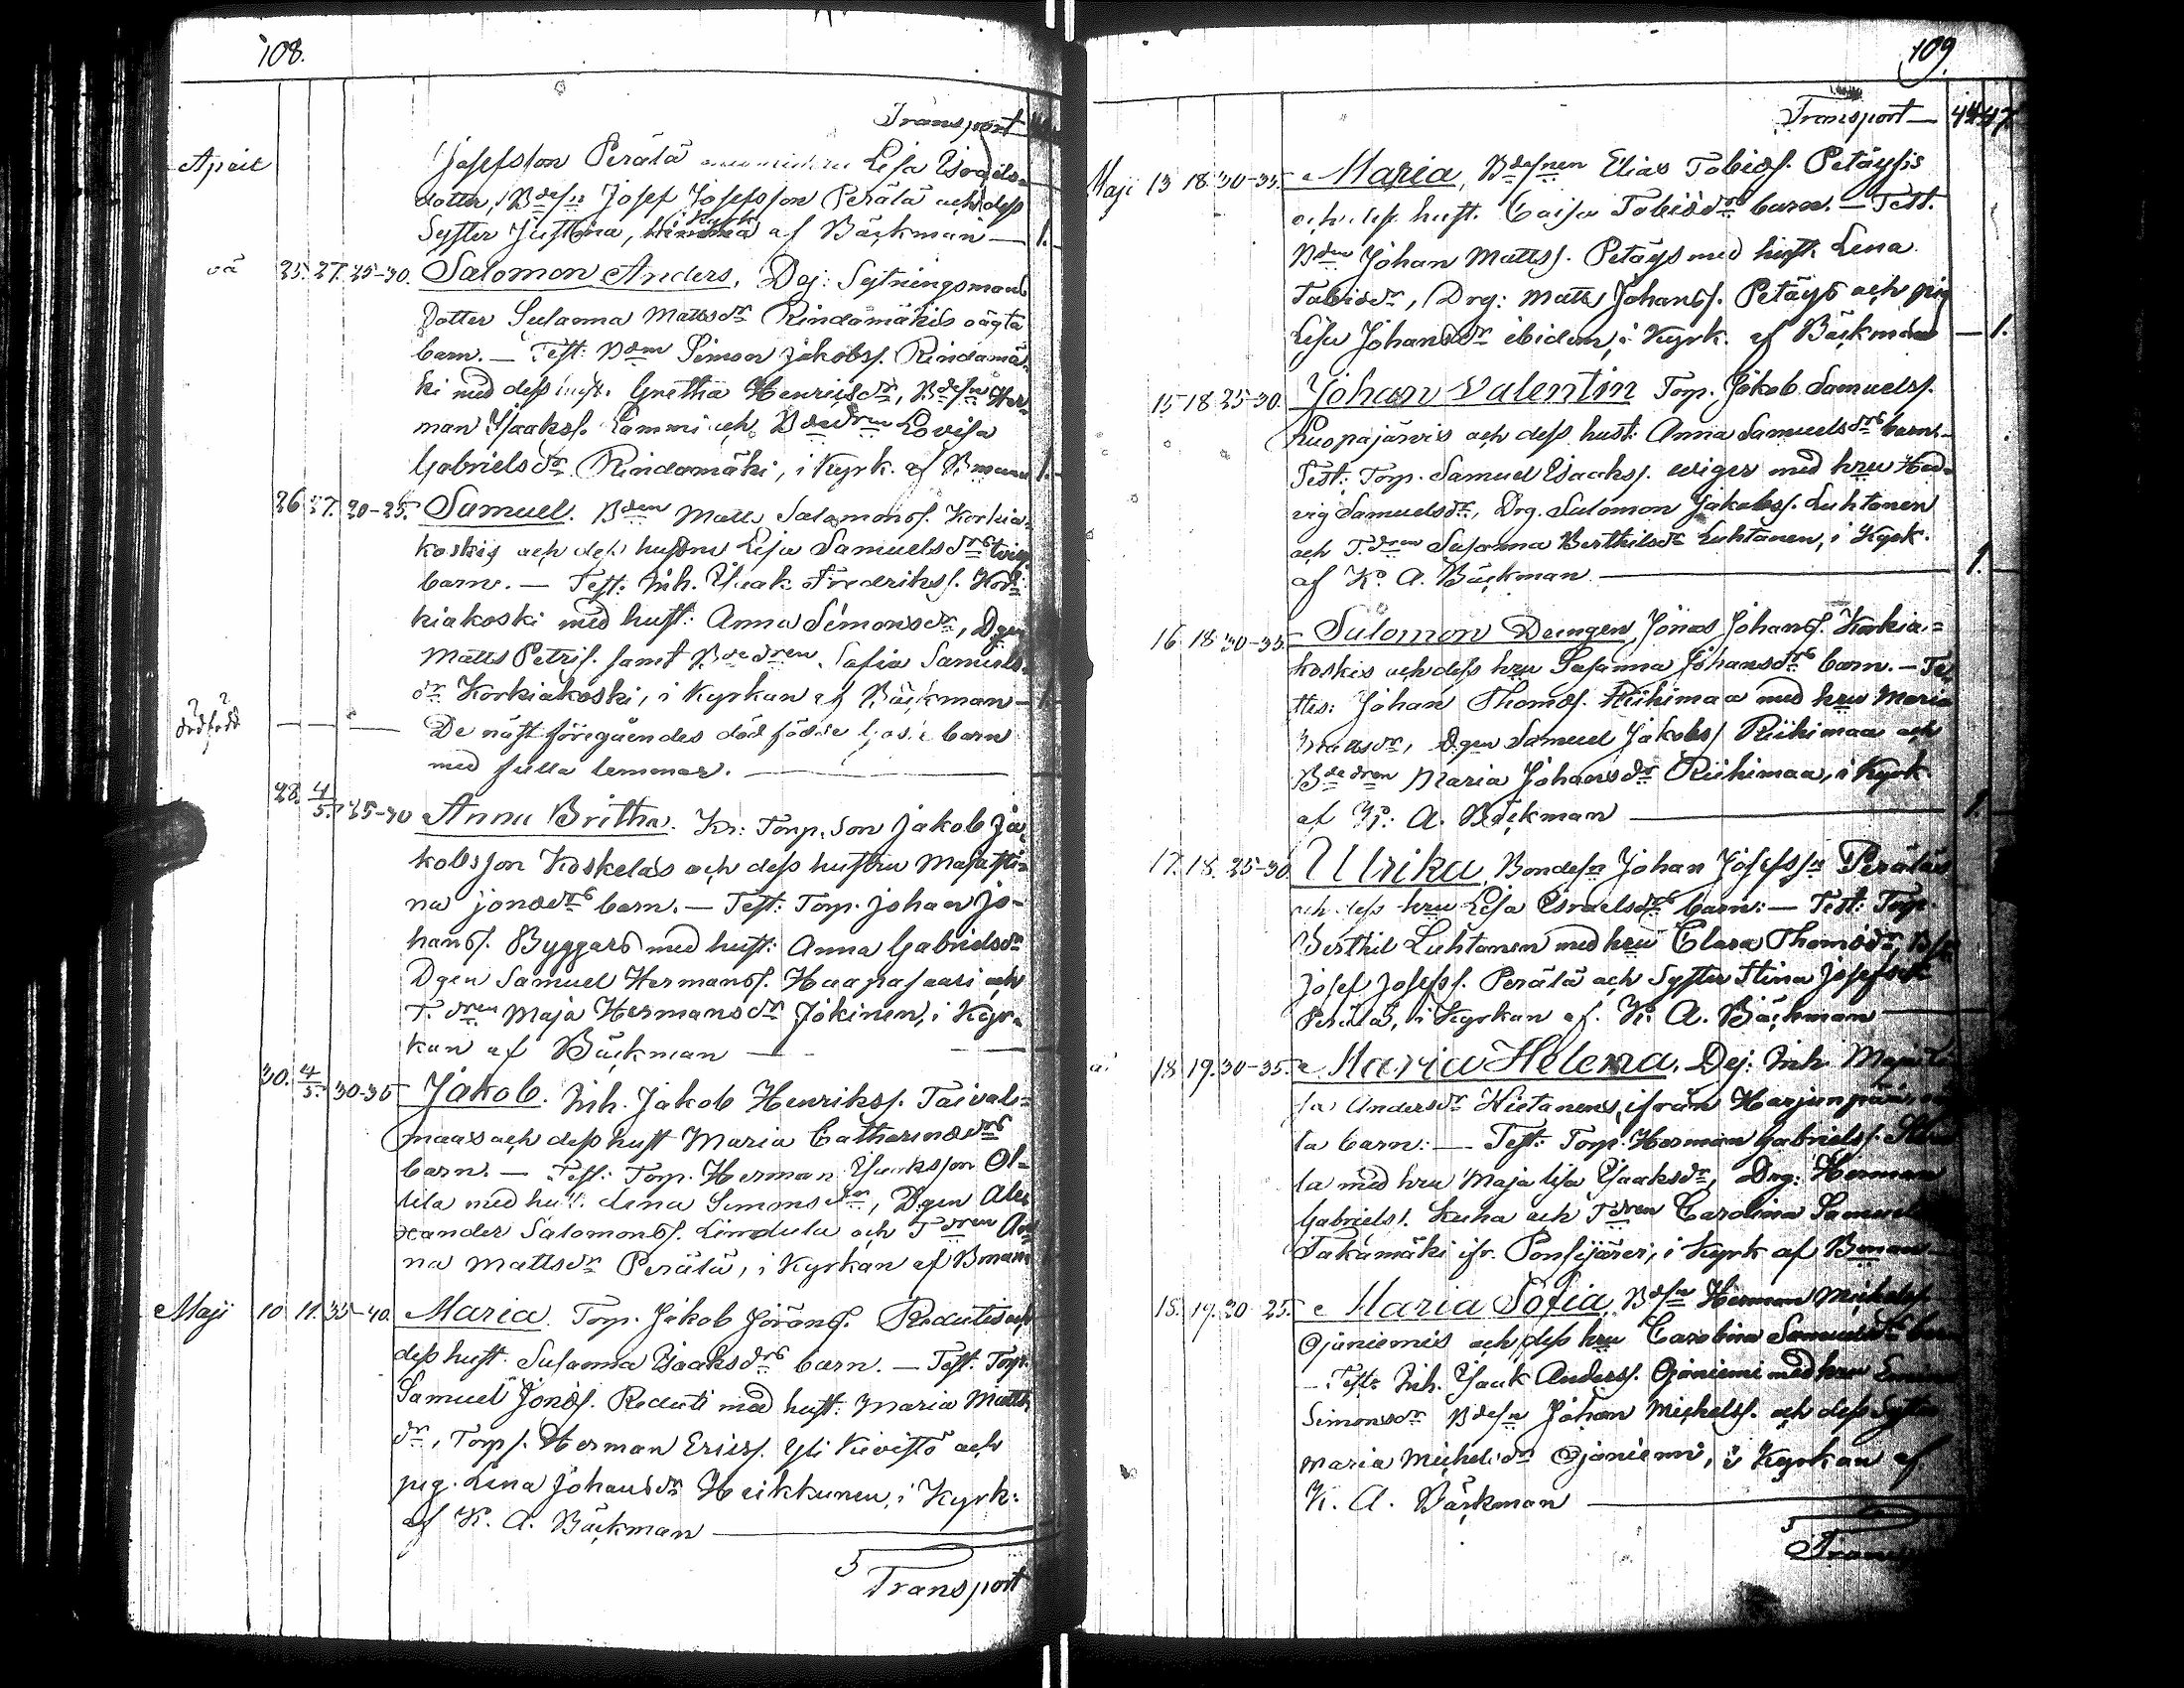 108.
Transport
April
Josefsson Perälä Lisa Israels-
dotter, Bdesn Josef Josefsson Perälä och dess
Syster Justina, i Kyrk. af Bäckman — 1.
oä 25. 27. 25-30. Salomon Anders, Dej: Sytningsmans
Dotter Susanna Mattsdr Rindamäkis oägta
barn. — Test: Bdn Simon Jakobs. Rindamä-
ki med dess hust. Gretha Henriksdr, Bdesn Her-
man Isaaks. Lammi och Bdedren Lovisa
Gabrielsdr Rindamäki, i Kyrk. af Bman 1.
26 27. 20-25. Samuel. Bden Matts Salomons. Korkia-
koskis och dess hustru Lisa Samuelsdrs
barn. — Test: Inh. Isak Fredriks. Kor-
kiakoski med hust: Anna Simonsdr, Dgen
Matts Petris. samt Bdedren Sofia Samuels-
dr Korkiakoski, i Kyrkan af Bäckman — 1.
dödfödd — De näst föregåendes död födde barn
med fulla lemmar. —
28. 4/5. 35-40 Anna Britha. Kr: Torp. Son Jakob Ja-
kobsson Koskelas och dess hustru Maja Sti-
na Jonsdrs barn. — Test: Torp. Johan Jo-
hans. Byggars med hust: Anna Gabrielsdr
Dgen Samuel Hermans. Haapasaari och
T. dren Maja Hermansdr Jokinen, i Kyr-
kan af Bäckman —
30. 4/5. 30-35 Jakob. Inh. Jakob Henriks. Taival-
maas och dess hust Maria Catharinadrs
barn. — Test: Torp. Herman Isaksson Ol-
lila med hust. Lena Simonsdr, Dgen Alex-
xander Salomons. Lindula och Tdren An-
na Mattsdr Perälä, i Kyrkan af Bman
Maji 10 11. 35-40. Maria. Torp. Jakob Jörans. Redutis och
dess hust. Susanna Isaaksdrs barn. — Test. Torp.
Samuel Jons. Reduti med hust: Maria Matts
dr, Torps. Herman Erics. Yli Kivistö och
pig. Lena Johansdr Heikkunen, i Kyrk:
af K. A. Bäckman —
5
Transport
109.
Transport — 44 47.
Maji 13 18. 30-35. Maria, Bdesnen Elias Tobias. Petäyss
och dess hust. Caisa Tobiasdrs barn. — Test.
Bden Johan Matts. Petäys med hust. Lena
Tobiasdr, Drg: Matts Johans. Petäys och pig
Lisa Johansdr ibidem, i Kyrk. af Bäckman — 1.
15 18 25-30 Johan Valentin Torp. Jakob Samuels.
Luopajärvis och dess hust: Anna Samuelsdrs barn.
Test: Torp. Samuel Isaaks. med hru Hed-
vig Samuelsdr, Drg. Salomon Jakobs. Luhtanen
och T.dren Susanna Berthilsdr Luhtanen, i Kyrk.
af K. A. Bäckman — 1.
16 18. 30-35. Salomon Drengen Jonas Johans. Korkia-
koskis och dess hru Susanna Johansdrs barn. — Te-
ttes: Johan Thoms. Riihimaa med hru Maria
Mattsdr, Dgen Samuel Jakobs. Riihimaa och
Bdedren Maria Johansdr Riihimaa, i Kyrk
af K. A. Bäckman — 1.
17. 18. 25-30. Ulrika, Bondesn Johan Josefssn Peräläs
och dess hru Lisa Israelsdrs barn: — Test: Torp.
Berthil Luhtanen med hru Clara Thomsdr,
Josef Josefs. Perälä och Syster Stina Josefsdr
Perälä, i Kyrkan af. K. A. Bäckman —
18 19. 30-35. Maria Helena. Dej: Inh. Maja
Andersdr Hietanens, ifrån Harjunpää,
ta barn: — Test: Torp. Herman Gabriels.
la med hru Maja Lisa Isaaksdr, Drg: Herman
Gabriels. Keiha och Tdren Carolina Samuels
Takamäki ifr. Ponsijärvi, i Kyrk af Bman
15. 19. 20-25. Maria Sofia, Bdesn Herman Michels.
Ojaniemis och dess hru Carolina Samuelsdr
— Test: Inh. Isaak Anders. Ojaniemi med hru
Simonsdr Bdesn Johan Michels. och dess Syster
Maria Michelsdr Ojaniemi, i Kyrkan af
K. A. Bäckman —
5
Transport